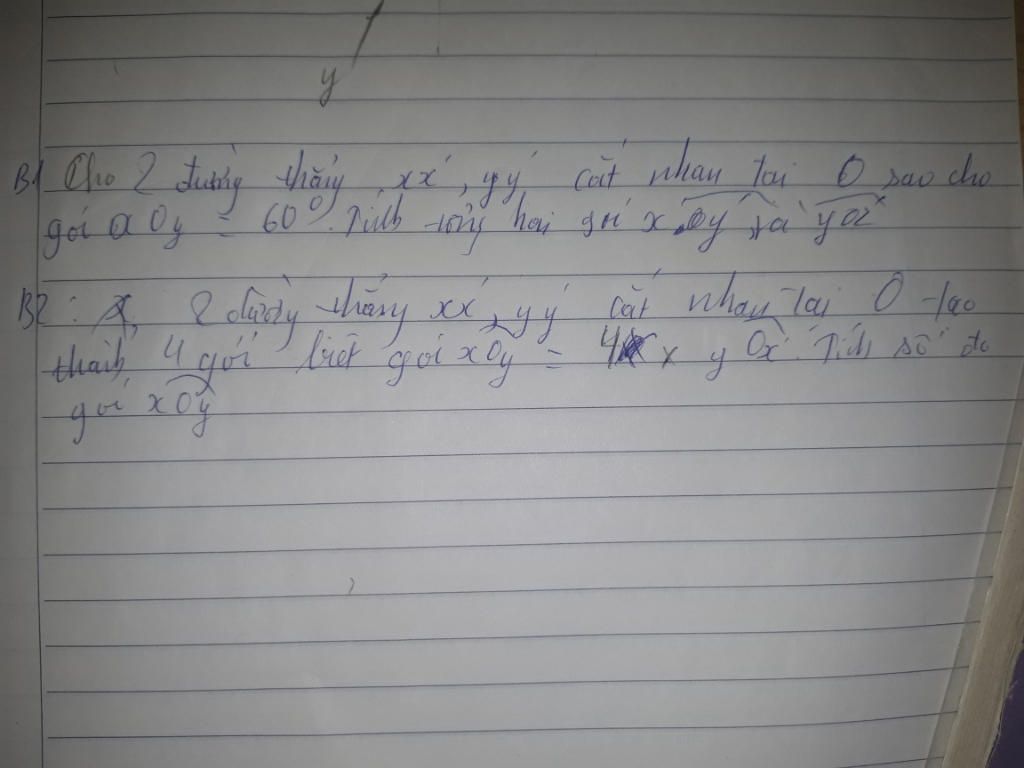 y
B1 Cho 2 đường thẳng xx', yy' cắt nhau tại O sao cho
góc xOy = 60°. Tính tổng hai góc x'Oy và
B2: 2 đường thẳng xx', yy' cắt nhau tại O tạo
thành 4 góc biết góc xOy = 4 x yOx'. Tính số đo
góc xOy